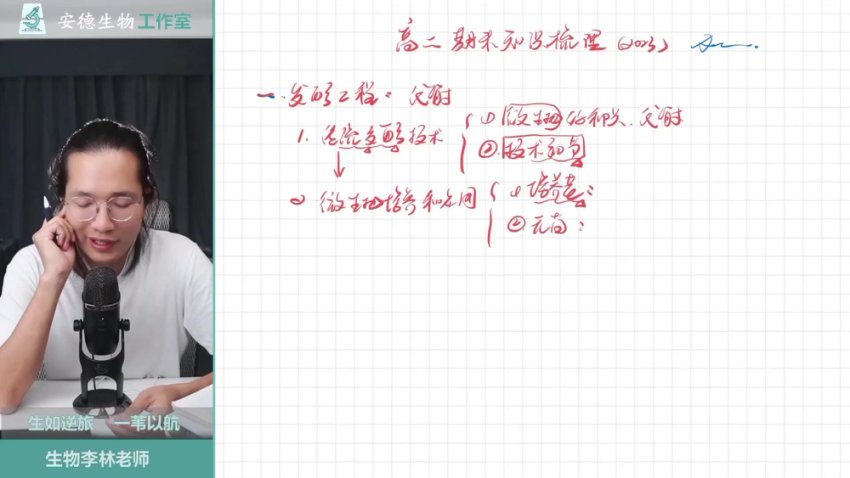 安德生物 工作室
高二期末知识梳理 (2023)
一. 发酵工程:
1. 传统发酵技术
① 微生物的种类.
② 技术细节
2 微生物培养和应用
① 培养基:
② 无菌:
生如逆旅 一苇以航
生物李林老师